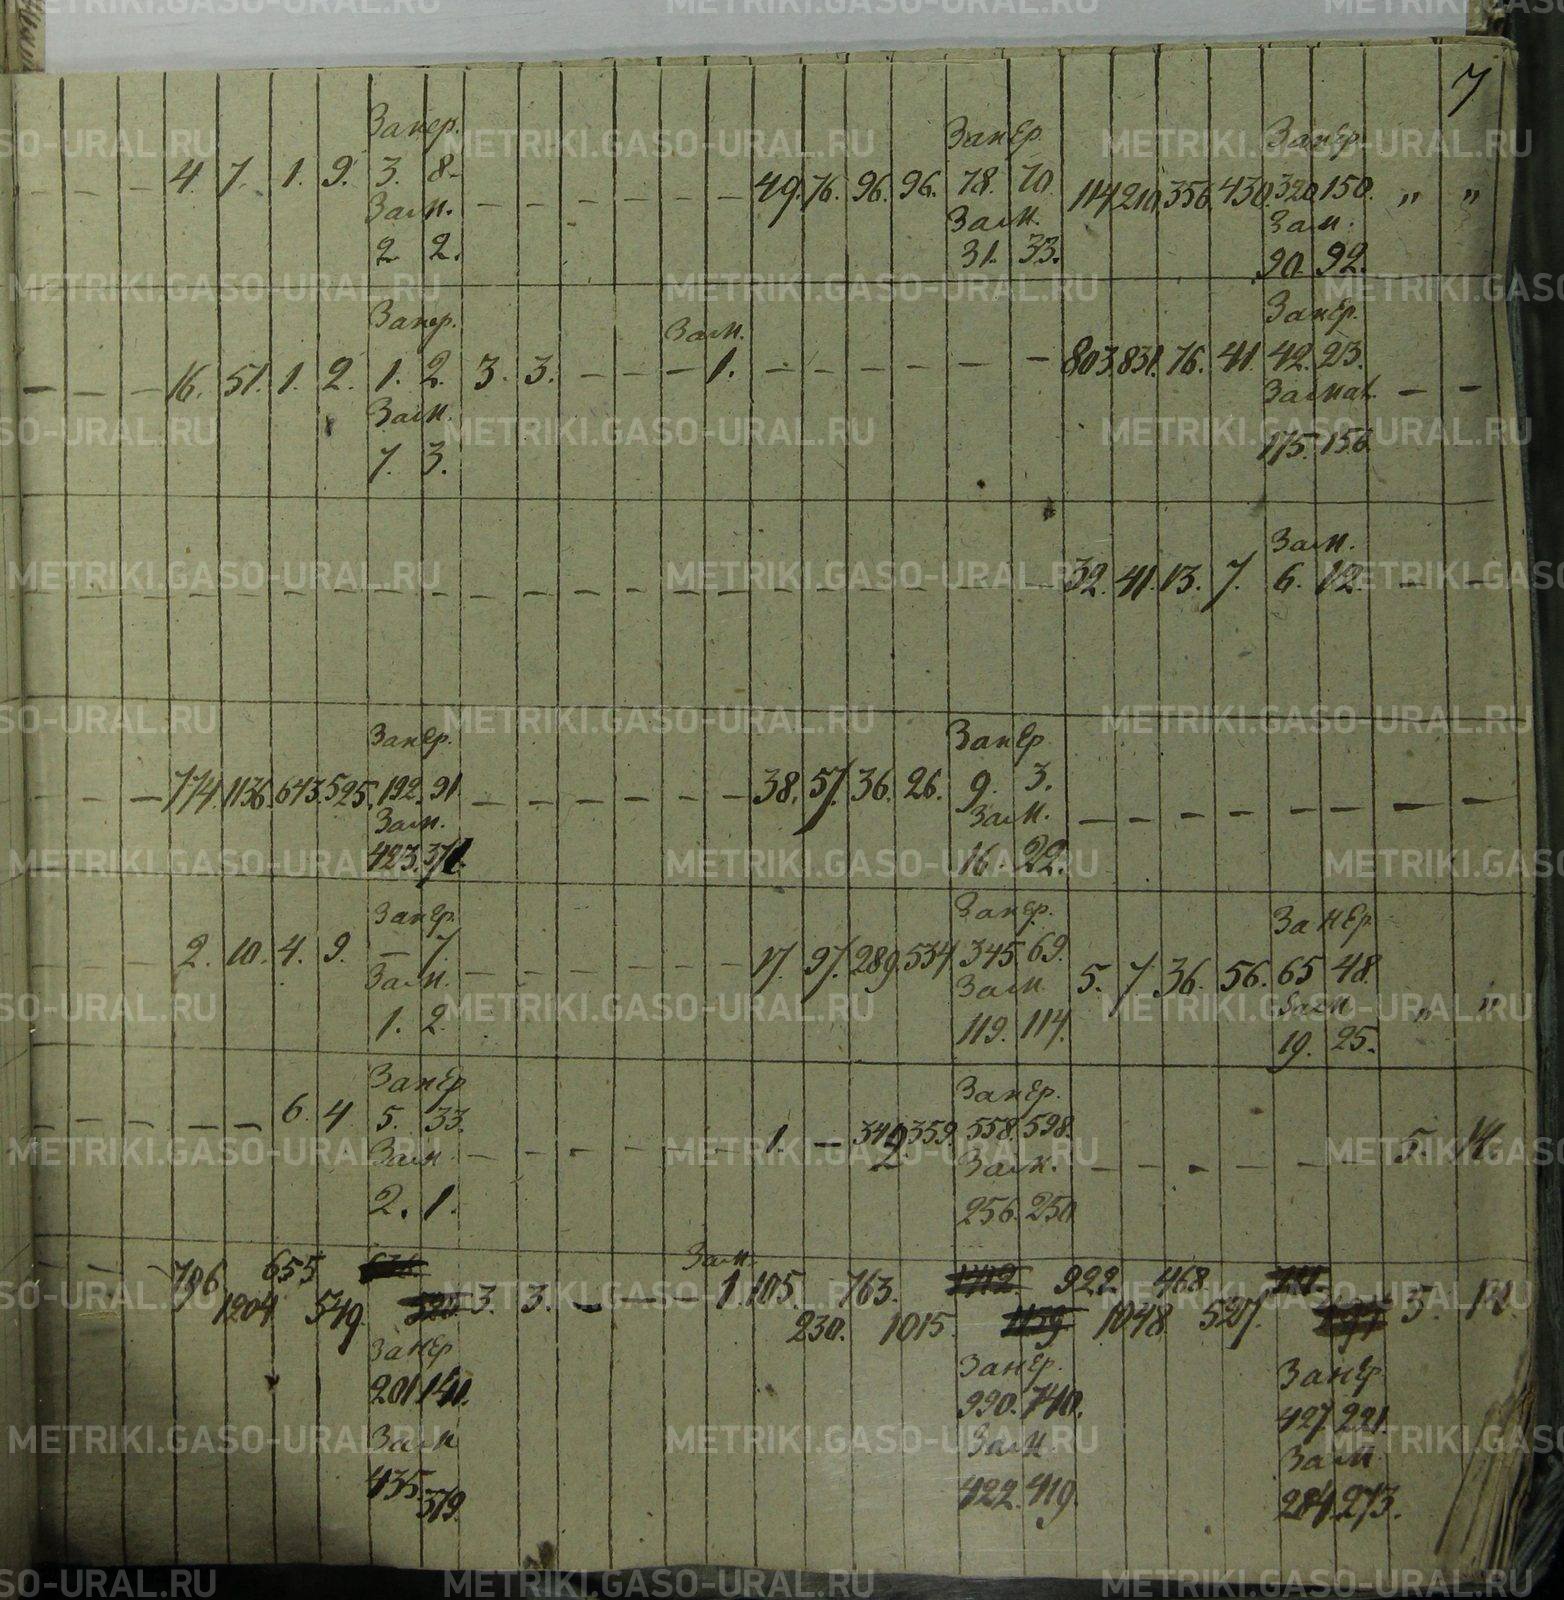 7
Занер. Занер. Занер.
— — — 4. 7. 1. 9. 3. 8. — — — — — — 49. 76. 96. 96. 78. 70. 114. 210. 356. 430. 320. 150. „ „
Зам. Зам. Зам.
2 2. 31. 33. 90. 92.
Занер. Зам. Занер.
— — — 16. 51. 1. 2. 1. 2. 3. 3. — — — 1. — — — — — — 803. 831. 76. 41. 42. 23. — —
Зам. Замат.
7. 3. 175. 156.
Зам.
— — — — — — — — — — — — — — — — — — — — — 32. 41. 13. 7. 6. 12. — —
Занер. Занер.
— — — 774. 1136. 643. 525. 192. 91. — — — — — — 38. 57. 36. 26. 9. 3. — — — — — — — —
Зам. Зам.
423. 371. 16. 22.
Занер. Занер. Занер.
— — — 2. 10. 4. 9. — 7. — — — — — — 17. 97. 289. 534. 345. 69. 5. 7. 36. 56. 65. 48. „ „
Зам. Зам. Зам.
1. 2. 119. 114. 19. 25.
Занер. Занер.
— — — — — 6. 4 5. 33. — — — — — — 1. — 359. 558. 598. — — — — — — 5. 14.
Зам. Зам.
2. 1. 256. 250.
Зам.
— — — 796 1204 655 549. 3. 3. — — — 1. 105. 230. 763. 1015. 922. 1048. 468. 527. 5. 14.
Занер. Занер. Занер.
201. 141. 990. 740. 427. 221.
Зам. Зам. Зам.
435. 379. 422. 419. 284. 273.
METRIKI.GASO-URAL.RU